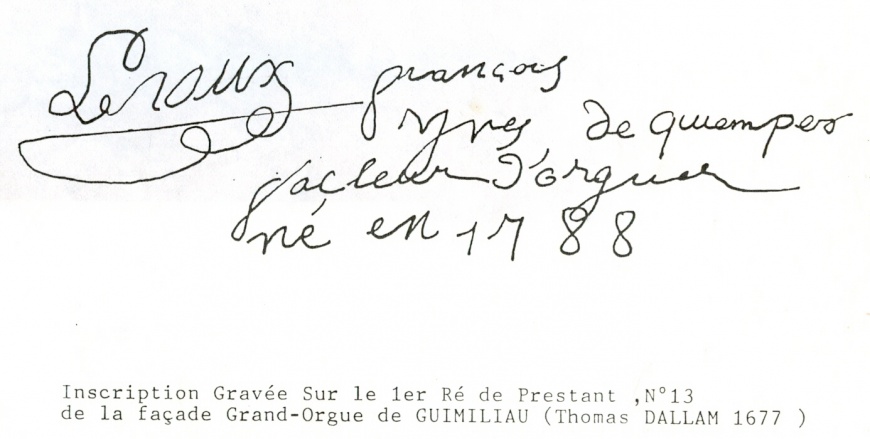 Leroux françois
yves de quimper
façteur d'orgues
né en 1788
Inscription Gravée Sur le 1er Ré de Prestant ,N°13
de la façade Grand-Orgue de GUIMILIAU (Thomas DALLAM 1677 )